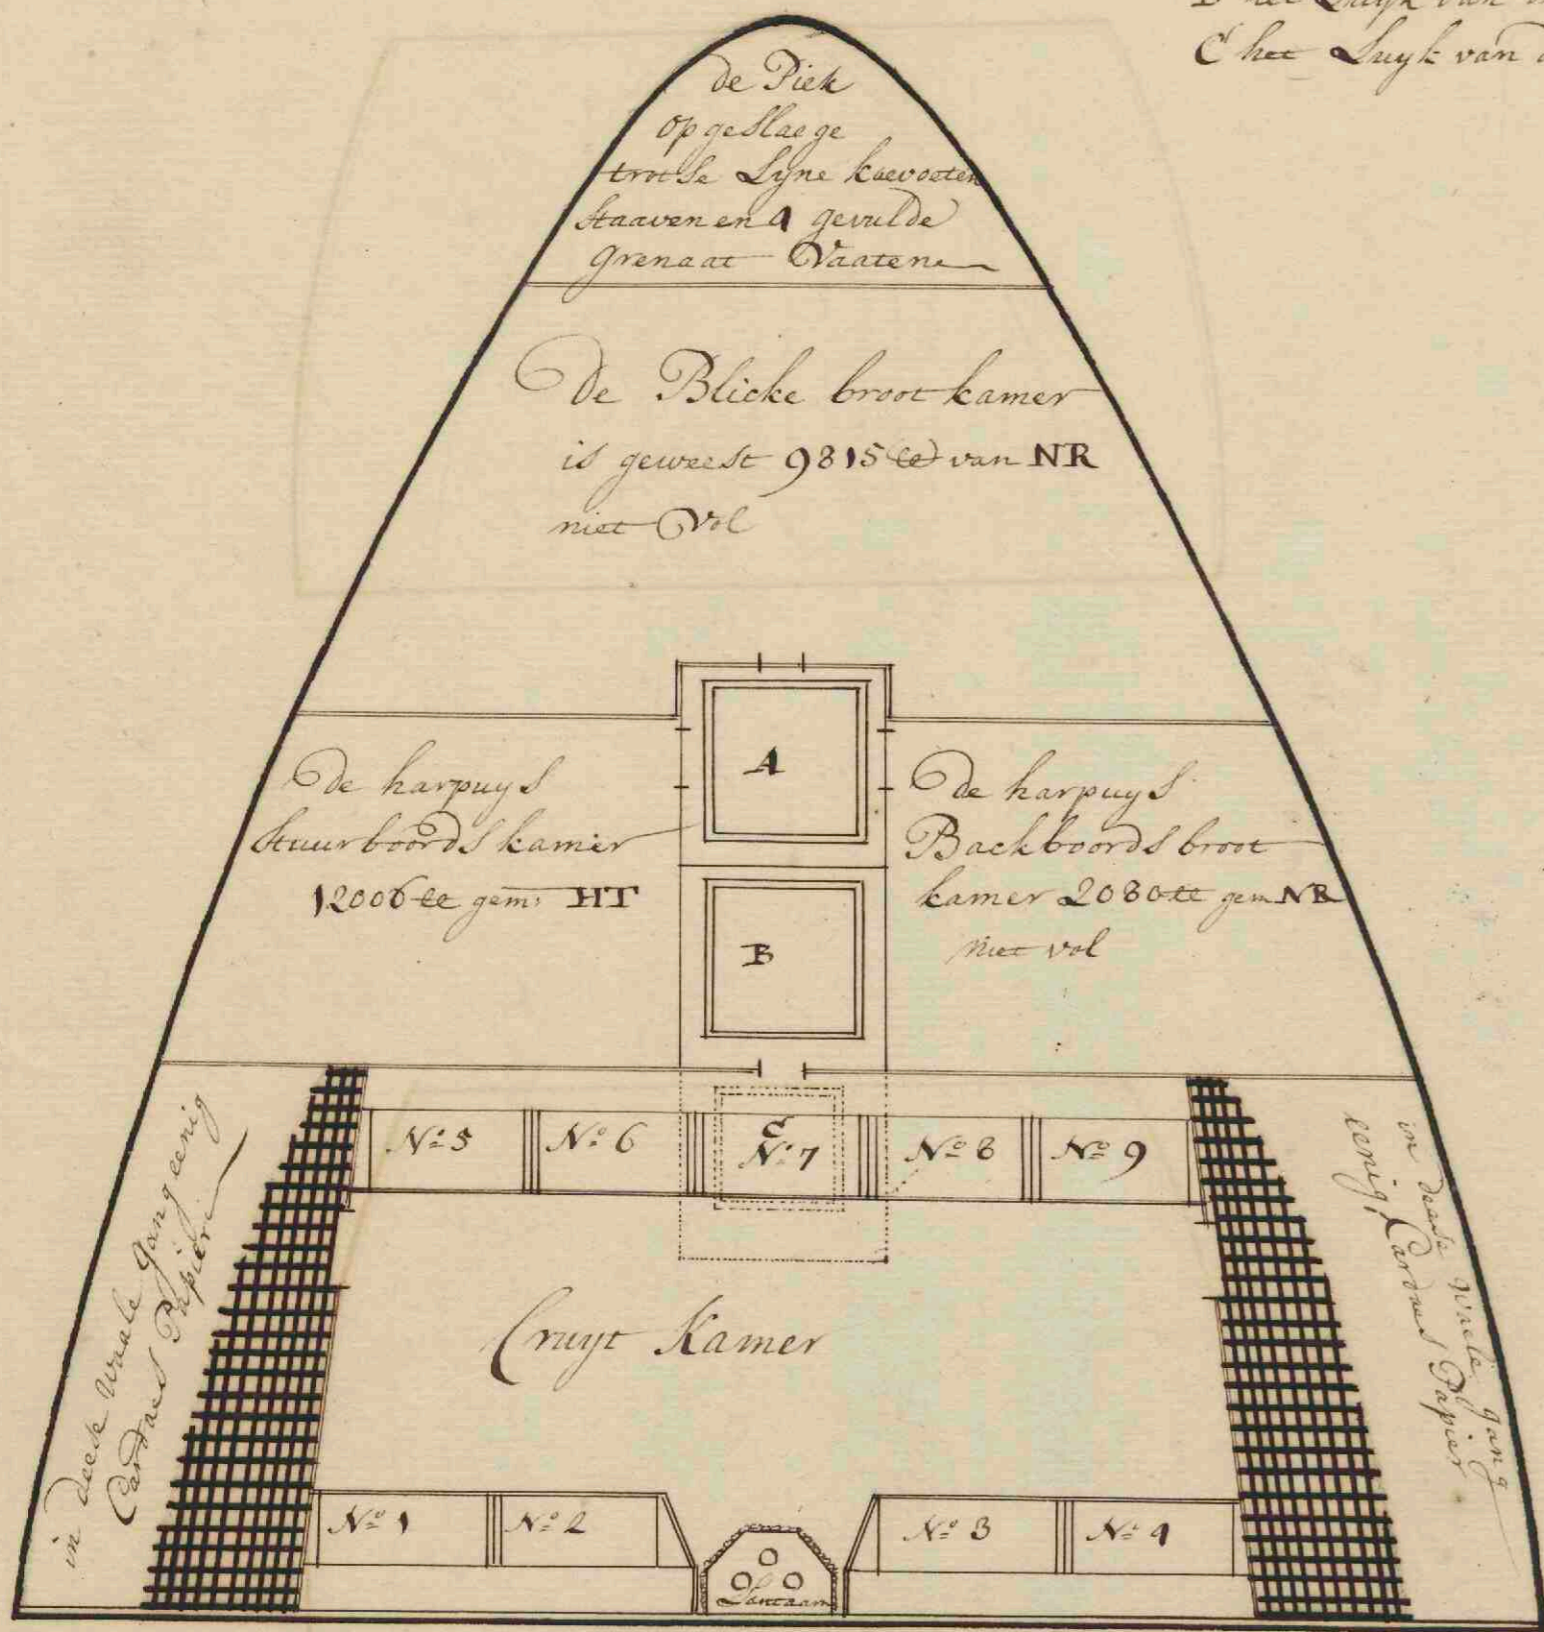 C het Luyk van
de Piek
opgeslaege
trotse Lyne koevoeten
Staaven en 4 gevulde
grenaat Vaaten
De Blicke broot kamer
is geweest 9815 van NR
niet Vol
A
De harpuys
Stuurboords kamer
12006 gem: HT
De harpuys
Backboords broot
kamer 2080 gem NR
niet vol
B
No 5
No 6
C
No 7
No 8
No 9
in deese waale gang eenig
Cardoes Papier
in deese waale gang
eenig Cardoes Papier
Cruyt Kamer
No 1
No 2
No 3
No 4
Lantaarn